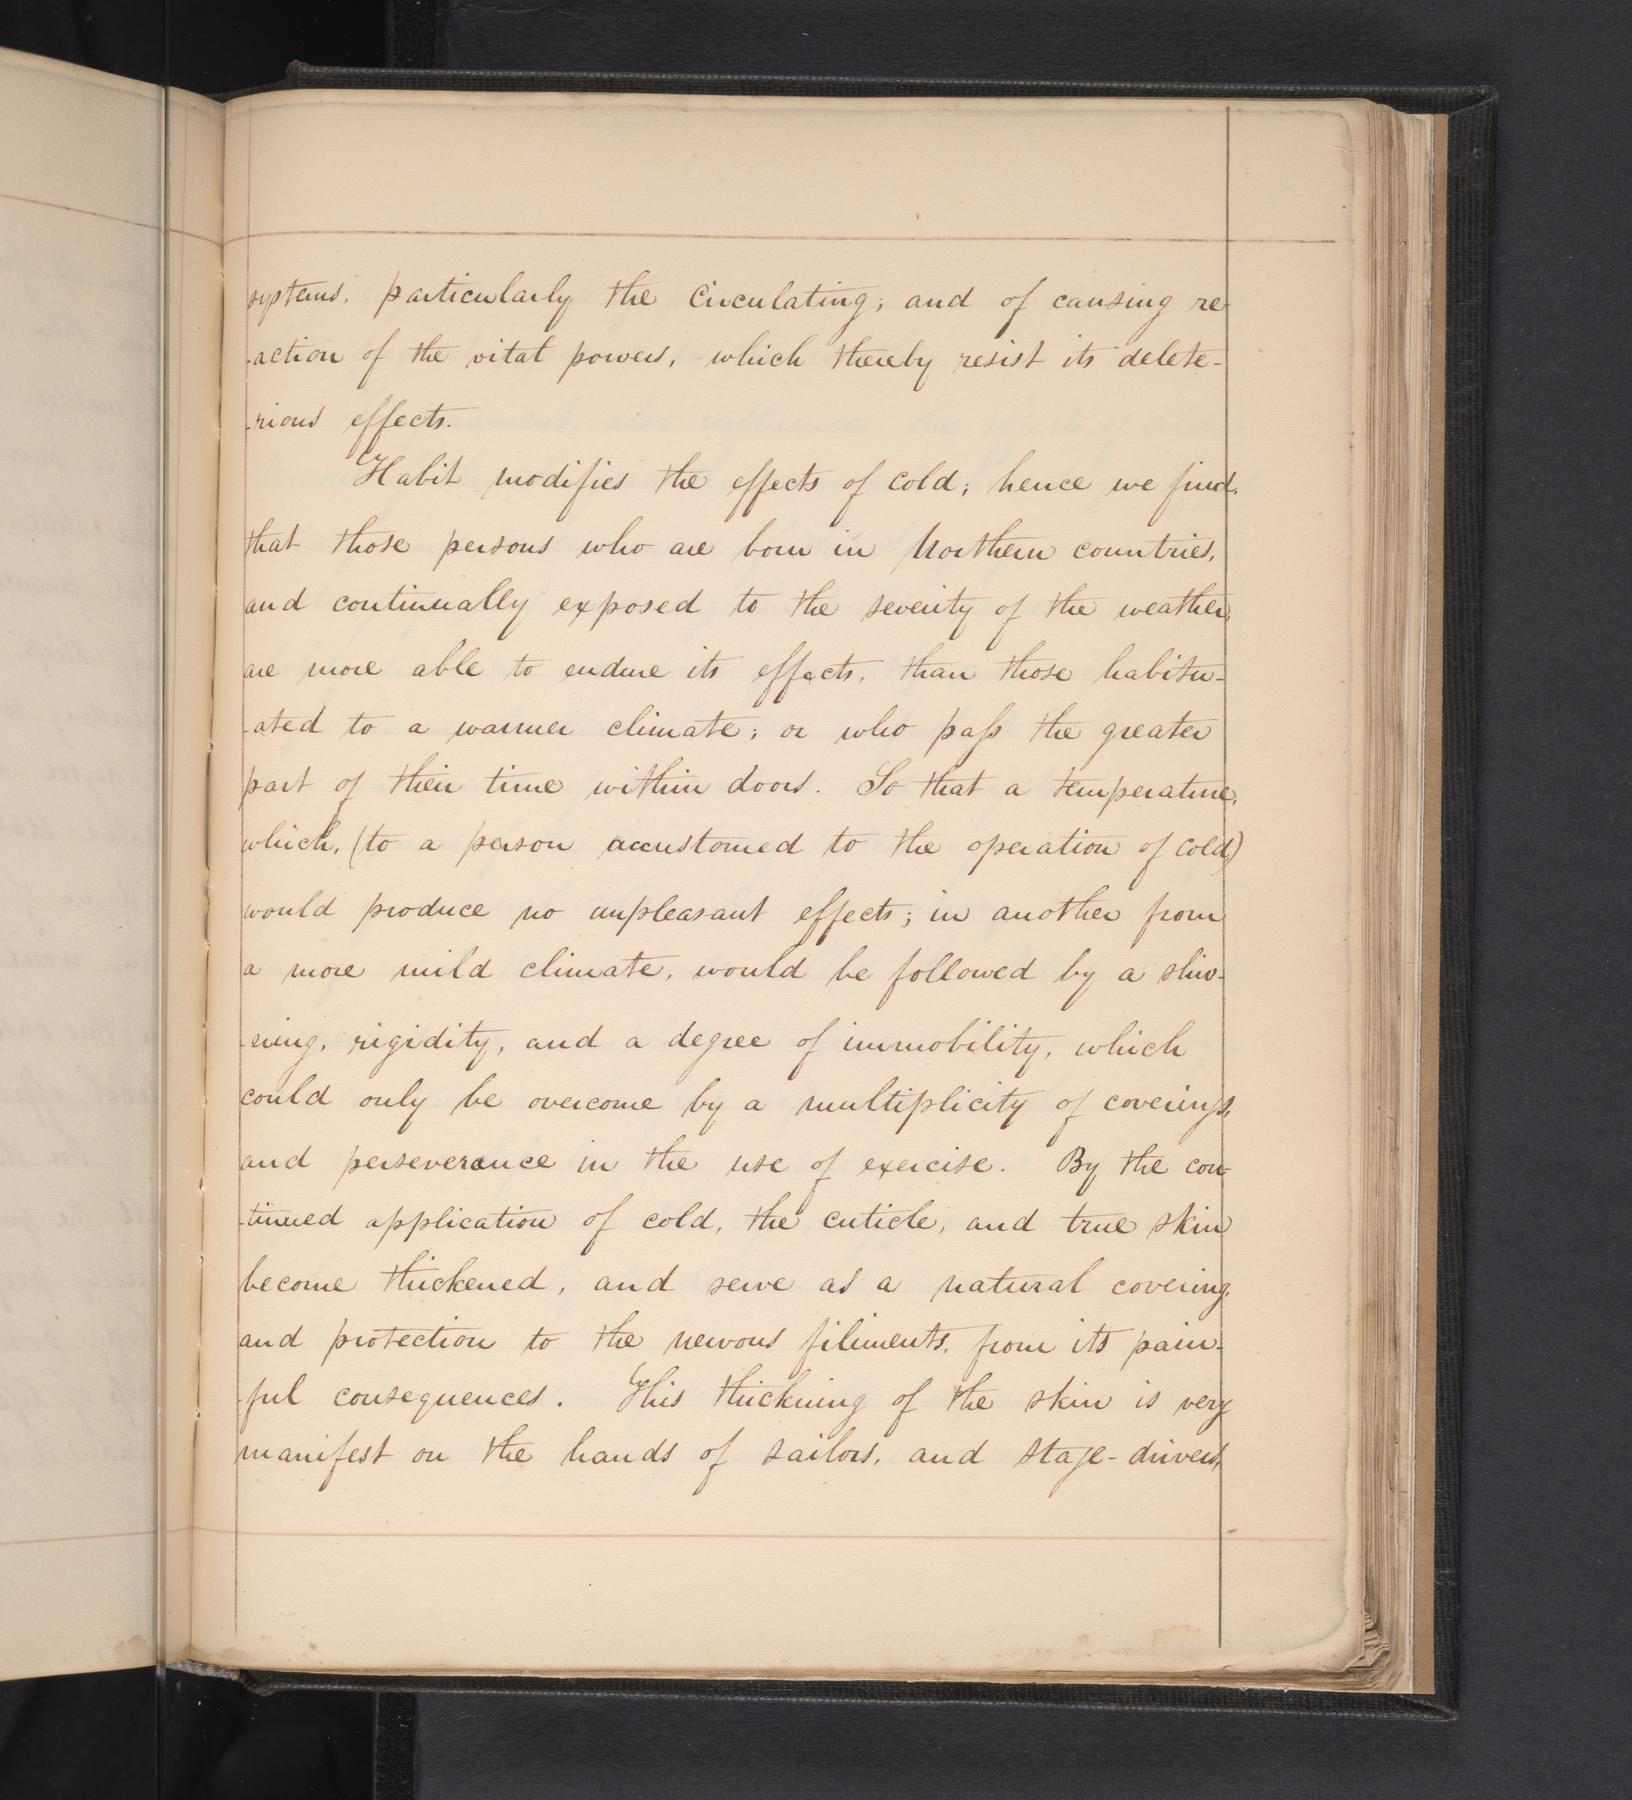 systems, particularly the Circulating; and of causing re
-action of the vital powers, which thereby resist its delete-
-rious effects.
Habit modifies the effects of cold; hence we find,
that those persons who are born in Northern countries,
and continually exposed to the severity of the weather,
are more able to endure its effects, than those habitu-
-ated to a warmer climate; or who paſs the greater
part of their time within doors. So that a temperature,
which, (to a person accustomed to the operation of cold)
would produce no unpleasant effects; in another from
a more mild climate, would be followed by a shiv-
-ering, rigidity, and a degree of immobility, which
could only be overcome by a multiplicity of coverings,
and perseverance in the use of exercise. By the con-
-tinued application of cold, the cuticle, and true skin
become thickened, and serve as a natural covering,
and protection to the nervous filiments, from its pain-
-ful consequences. This thickning of the skin is very
manifest on the hands of sailors, and stage-drivers,